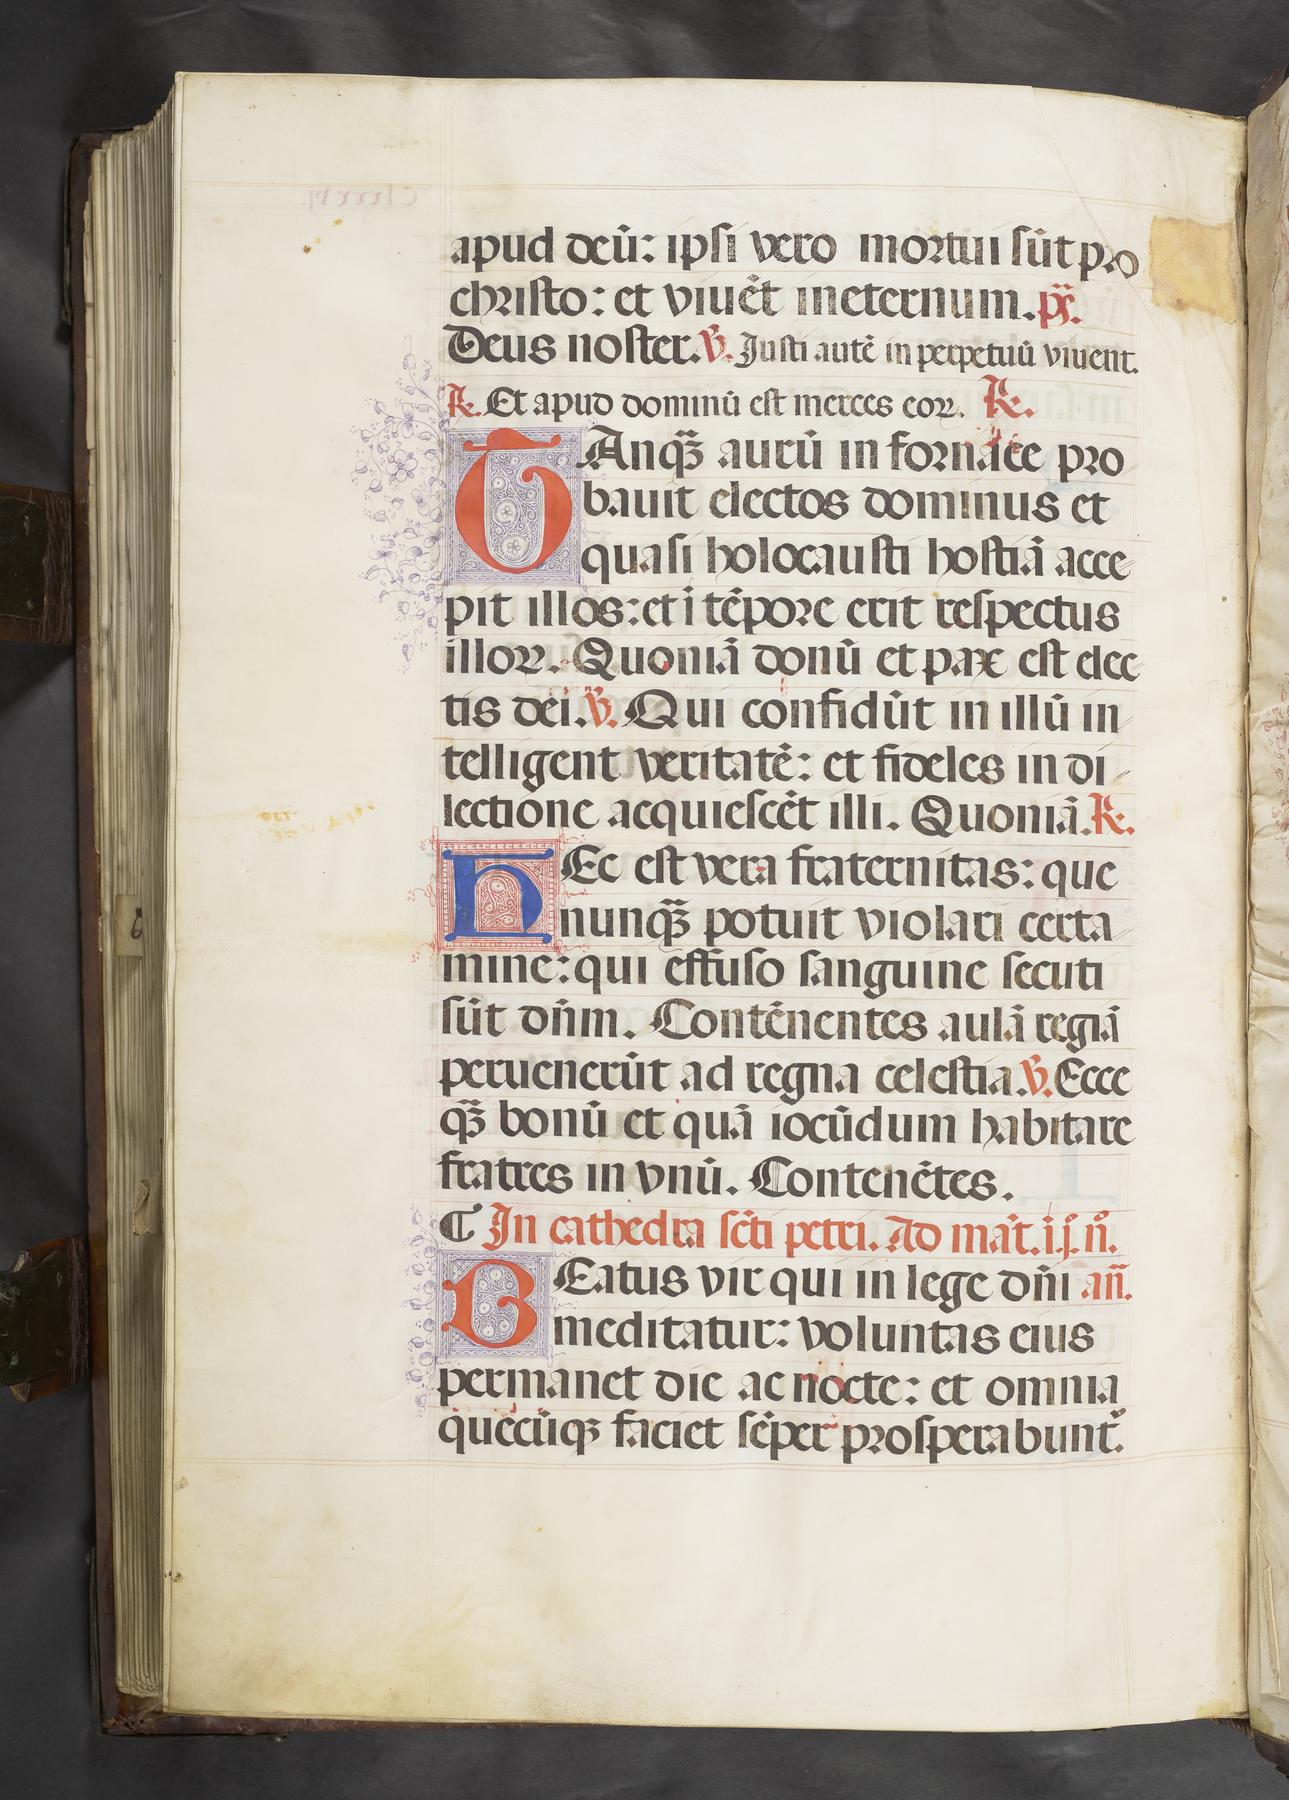 apud deū: ipsi vero mortui sūt pro
christo: et viuēt ineternum. p̄s.
Deus noster. ℣. Justi autē in perpetuū viuent.
℟. Et apud dominū est merces eoꝝ. ℟.
TAnqꝫ aurū in fornace pro
bauit electos dominus et
quasi holocausti hostiā acce
pit illos: et ī tēpore erit respectus
illoꝝ. Quoniā donū et pax est elec
tis dei. ℣. Qui confidūt in illū in
telligent veritatē: et fideles in di
lectione acquiescēt illi. Quoniā. ℟.
HEc est vera fraternitas: que
nunqꝫ potuit violari certa
mine: qui effuso sanguine secuti
sūt dn̄m. Contēnentes aulā regiā
peruenerūt ad regna celestia. ℣. Ecce
qꝫ bonū et quā iocūdum habitare
fratres in vnū. Contenētes.
¶ In cathedra scti petri. Ad mat̄. i.j. n̊.
BEatus vir qui in lege dn̄i an̄.
meditatur: voluntas eius
permanet die ac nocte: et omnia
quecūqꝫ faciet sēper prosperabunt᷑.
6